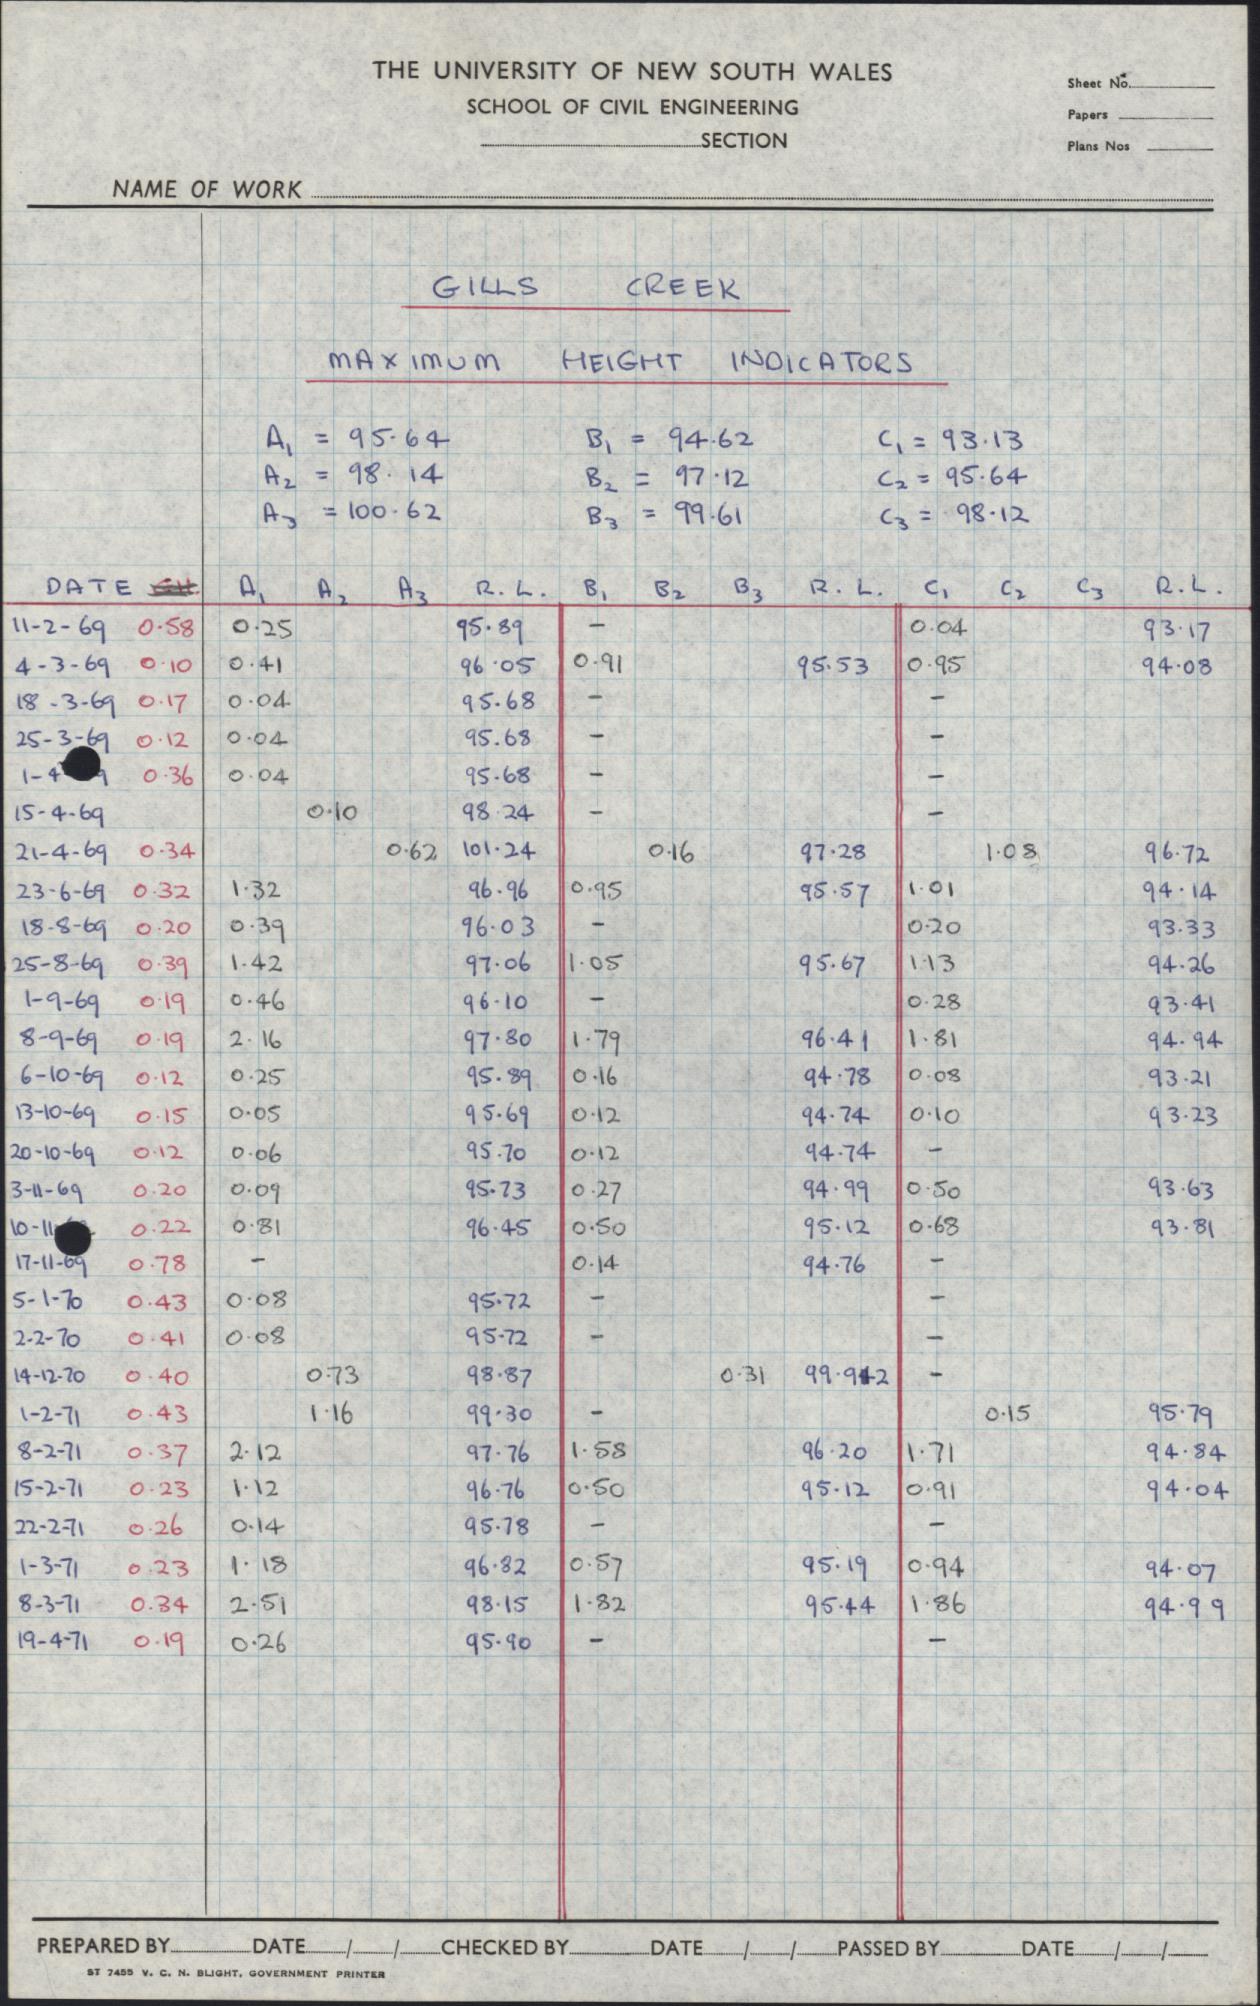 THE UNIVERSITY OF NEW SOUTH WALES
Sheet No.
SCHOOL OF CIVIL ENGINEERING
Papers
SECTION
Plans Nos
NAME OF WORK
GILLS CREEK
MAXIMUM HEIGHT INDICATORS
A₁ = 95.64 B₁ = 94.62 C₁ = 93.13
A₂ = 98.14 B₂ = 97.12 C₂ = 95.64
A₃ = 100.62 B₃ = 99.61 C₃ = 98.12
DATE A₁ A₂ A₃ R.L. B₁ B₂ B₃ R.L. C₁ C₂ C₃ R.L.
11-2-69 0.58 0.25 95.89 – 0.04 93.17
4-3-69 0.10 0.41 96.05 0.91 95.53 0.95 94.08
18-3-69 0.17 0.04 95.68 – –
25-3-69 0.12 0.04 95.68 – –
1-4 9 0.36 0.04 95.68 – –
15-4-69 0.10 98.24 – –
21-4-69 0.34 0.62 101.24 0.16 97.28 1.08 96.72
23-6-69 0.32 1.32 96.96 0.95 95.57 1.01 94.14
18-8-69 0.20 0.39 96.03 – 0.20 93.33
25-8-69 0.39 1.42 97.06 1.05 95.67 1.13 94.26
1-9-69 0.19 0.46 96.10 – 0.28 93.41
8-9-69 0.19 2.16 97.80 1.79 96.41 1.81 94.94
6-10-69 0.12 0.25 95.89 0.16 94.78 0.08 93.21
13-10-69 0.15 0.05 95.69 0.12 94.74 0.10 93.23
20-10-69 0.12 0.06 95.70 0.12 94.74 –
3-11-69 0.20 0.09 95.73 0.27 94.99 0.50 93.63
10-11 0.22 0.81 96.45 0.50 95.12 0.68 93.81
17-11-69 0.78 – 0.14 94.76 –
5-1-70 0.43 0.08 95.72 – –
2-2-70 0.41 0.08 95.72 – –
14-12-70 0.40 0.73 98.87 0.31 99.92 –
1-2-71 0.43 1.16 99.30 – 0.15 95.79
8-2-71 0.37 2.12 97.76 1.58 96.20 1.71 94.84
15-2-71 0.23 1.12 96.76 0.50 95.12 0.91 94.04
22-2-71 0.26 0.14 95.78 – –
1-3-71 0.23 1.18 96.82 0.57 95.19 0.94 94.07
8-3-71 0.34 2.51 98.15 1.82 95.44 1.86 94.99
19-4-71 0.19 0.26 95.90 – –
PREPARED BY DATE / / CHECKED BY DATE / / PASSED BY DATE / /
ST 7455 V. C. N. BLIGHT, GOVERNMENT PRINTER